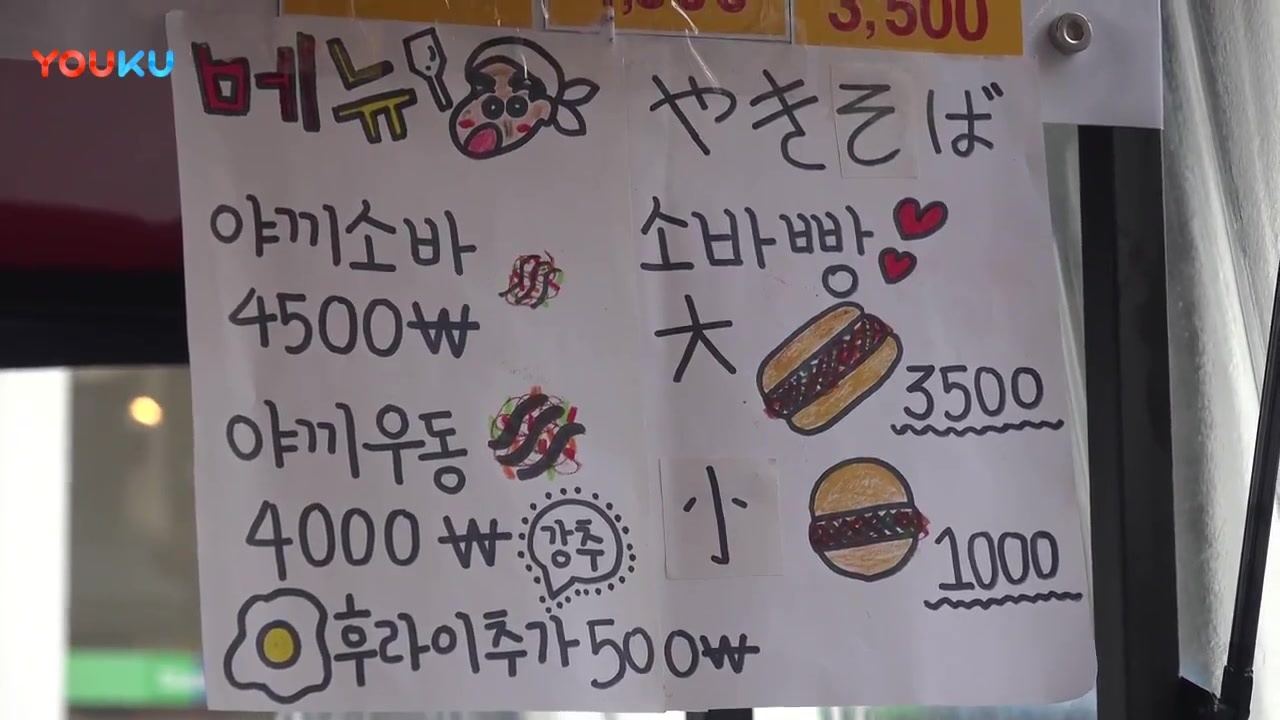 3,500
YOUKU
메뉴
야끼소바
4500₩
야끼우동
4000₩
강추
후라이추가 500₩
やきそば
소바빵
大
3500
小
1000